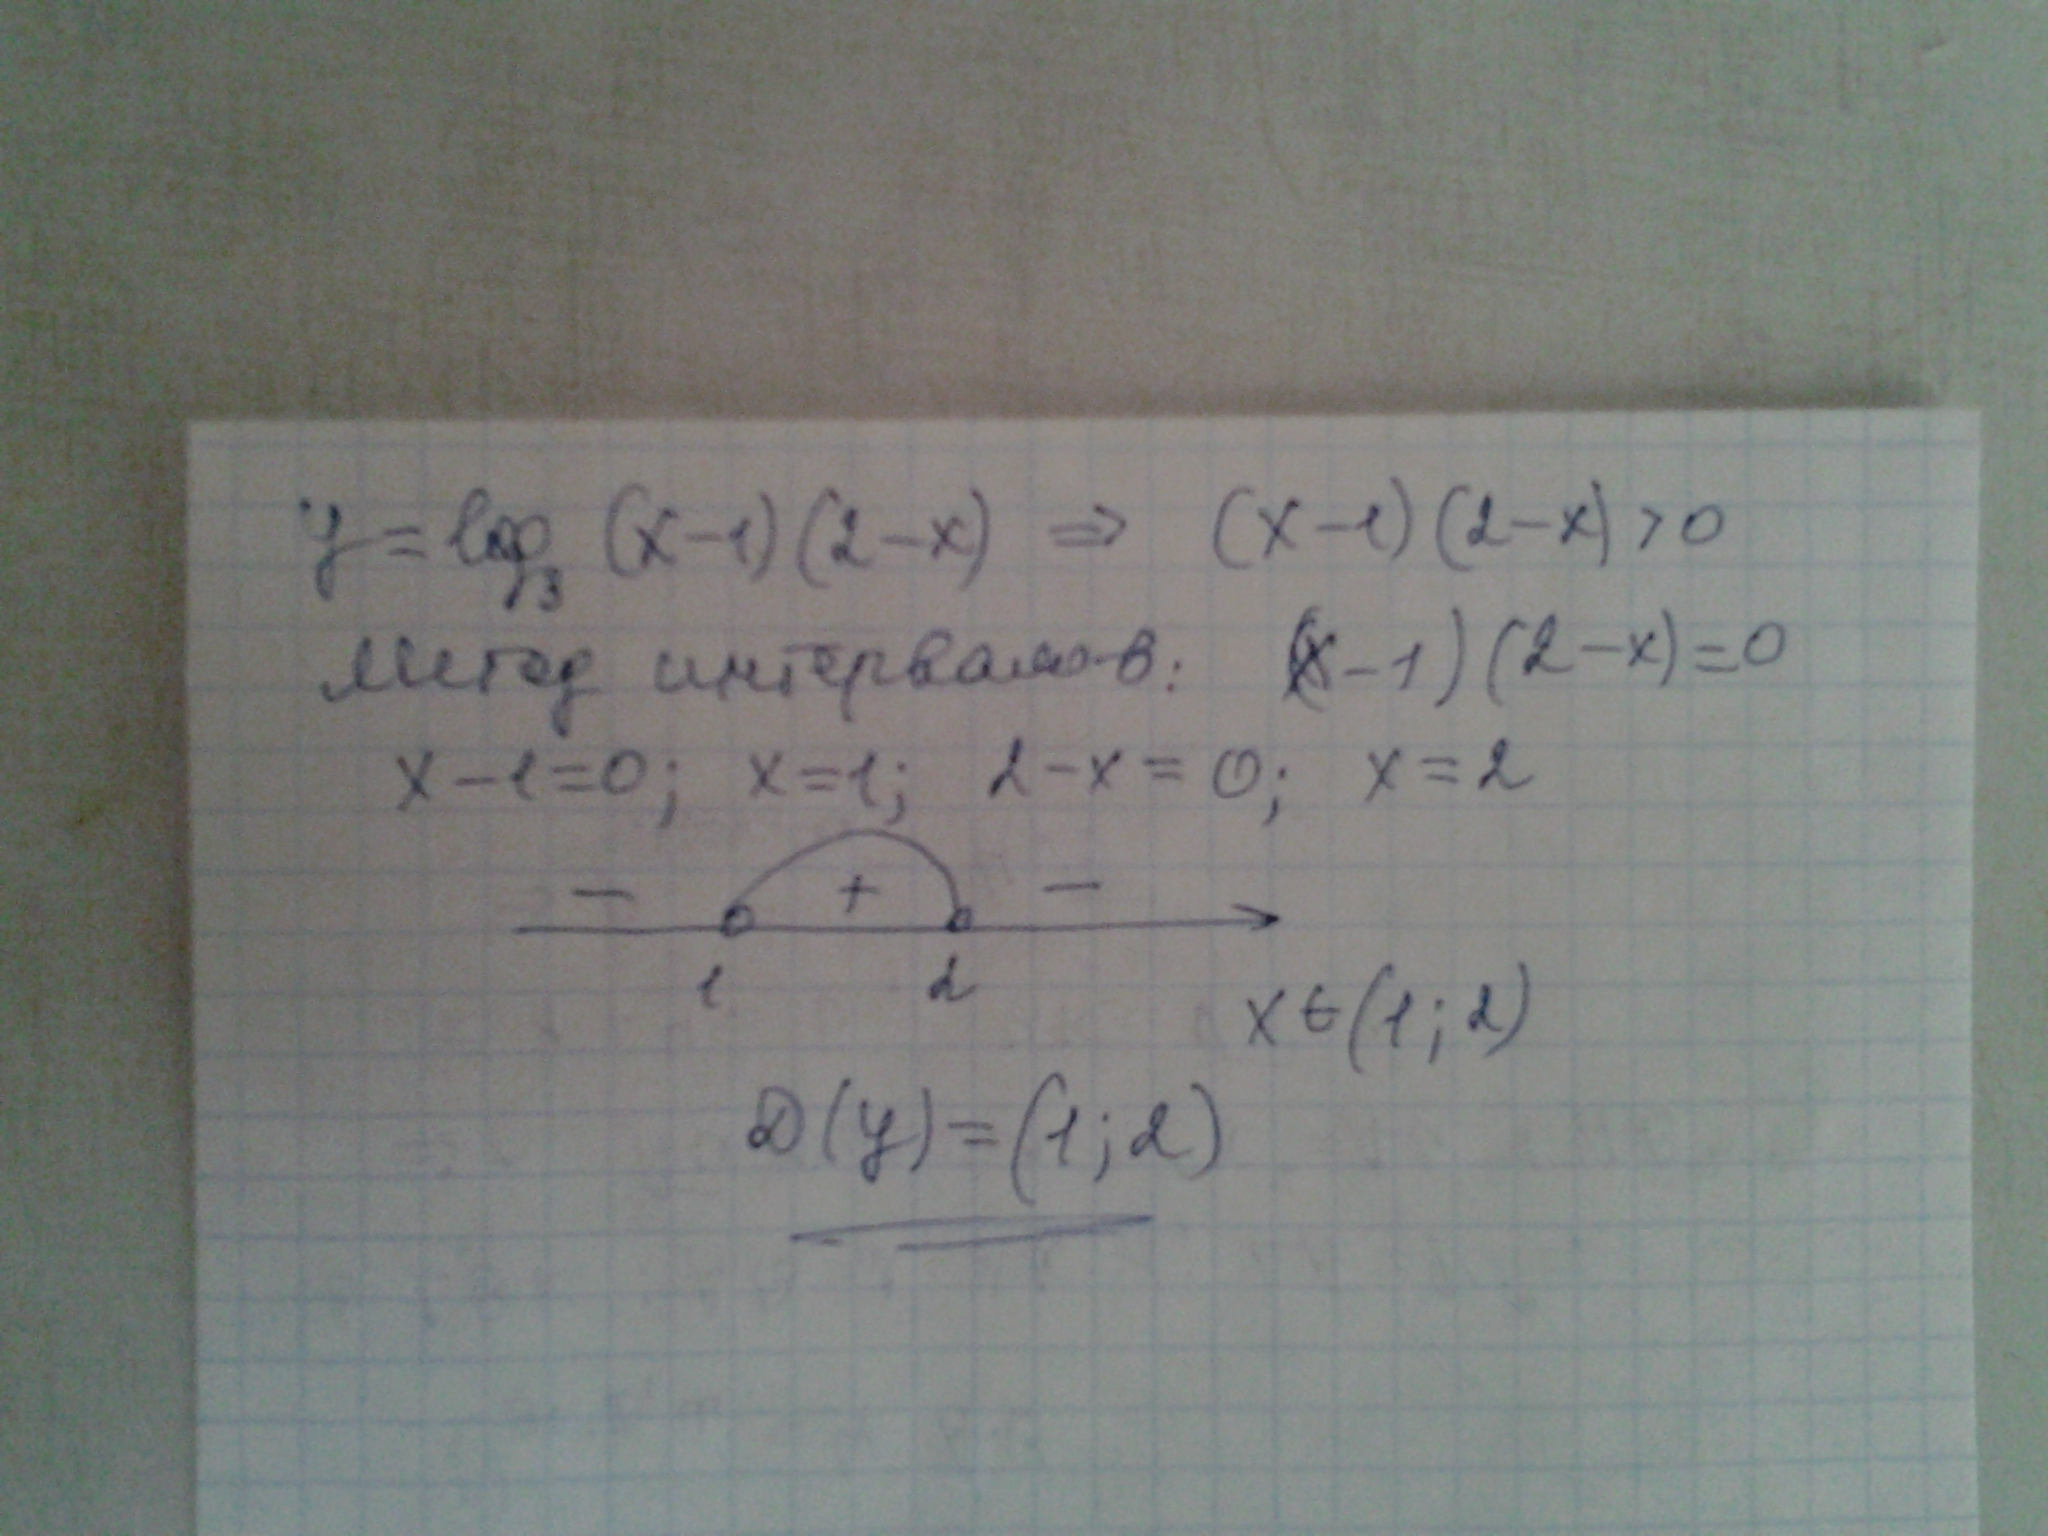 y = log₃ (x-1)(2-x) ⇒ (x-1)(2-x)>0
Метод интервалов: (x-1)(2-x)=0
x-1=0; x=1; 2-x=0; x=2
- + -
1 2
x∈(1;2)
D(y)=(1;2)